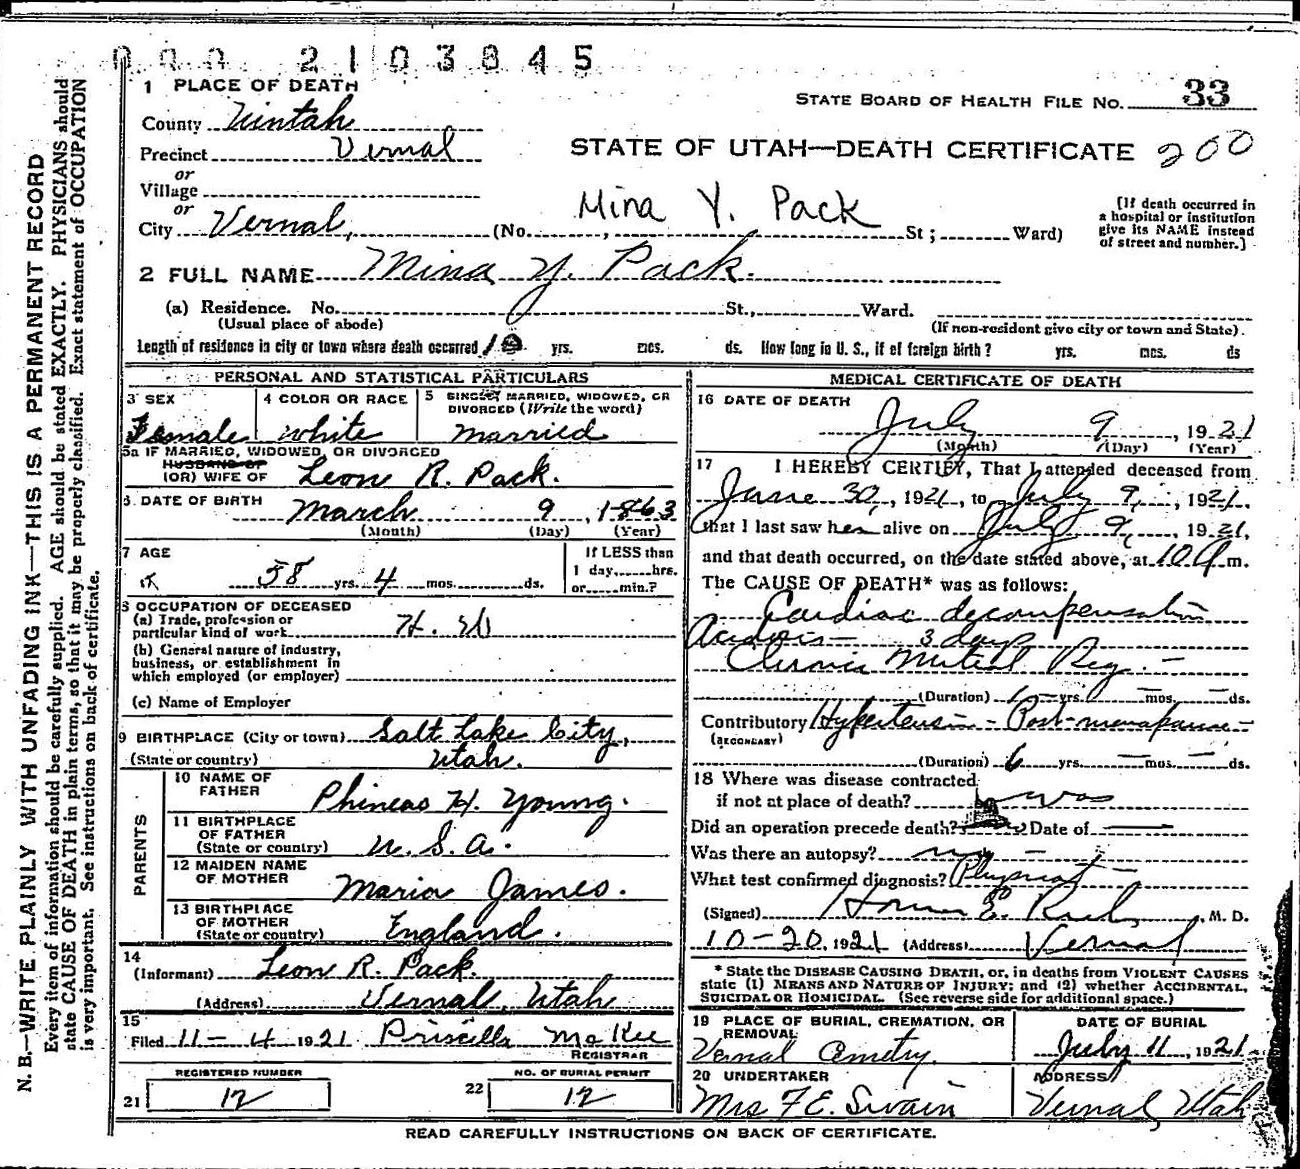 000 2103845
1 PLACE OF DEATH
STATE BOARD OF HEALTH FILE NO. 33
County Uintah
Precinct Vernal
STATE OF UTAH—DEATH CERTIFICATE 200
or
Village
or
Mina Y. Pack
City Vernal, (No. , St; Ward)
[If death occurred in
a hospital or institution
give its NAME instead
of street and number.]
2 FULL NAME Mina Y. Pack.
(a) Residence. No. St., Ward.
(Usual place of abode)
(If non-resident give city or town and State).
Length of residence in city or town where death occurred yrs. mos. ds. How long in U. S., if of foreign birth? yrs. mos. ds
PERSONAL AND STATISTICAL PARTICULARS
3 SEX
Female
4 COLOR OR RACE
White
5 SINGLE, MARRIED, WIDOWED, OR
DIVORCED (Write the word)
Married
5a IF MARRIED, WIDOWED, OR DIVORCED
HUSBAND OF
(OR) WIFE OF Leon R. Pack.
6. DATE OF BIRTH March 9, 1863
(Month) (Day) (Year)
7 AGE
58 yrs. 4 mos. ds.
If LESS than
1 day, hrs.
or min.?
8 OCCUPATION OF DECEASED
(a) Trade, profession or
particular kind of work H. W
(b) General nature of industry,
business, or establishment in
which employed (or employer)
(c) Name of Employer
9 BIRTHPLACE (City or town) Salt Lake City,
(State or country) Utah.
PARENTS
10 NAME OF
FATHER Phineas H. Young.
11 BIRTHPLACE
OF FATHER
(State or country) U. S. A.
12 MAIDEN NAME
OF MOTHER Maria James.
13 BIRTHPLACE
OF MOTHER
(State or country) England.
14
(Informant) Leon R. Pack.
(Address) Vernal, Utah
15
Filed 11-4 1921 Priscilla McKee
REGISTRAR
REGISTERED NUMBER
21 12
NO. OF BURIAL PERMIT
22 12
MEDICAL CERTIFICATE OF DEATH
16 DATE OF DEATH
July 9, 1921
(Month) (Day) (Year)
17 I HEREBY CERTIFY, That I attended deceased from
June 30, 1921, to July 9, 1921,
that I last saw her alive on July 9, 1921,
and that death occurred, on the date stated above, at 10 A m.
The CAUSE OF DEATH* was as follows:
Cardiac decompensation
Acidosis— 3 days
Chronic Mitral Reg.—
(Duration) yrs. mos. ds.
Contributory Hypertension - Post-menopause
(SECONDARY)
(Duration) 6 yrs. mos. ds.
18 Where was disease contracted
if not at place of death? was
Did an operation precede death? Date of
Was there an autopsy? no
What test confirmed diagnosis? Physical
(Signed) E. , M. D.
10-20, 1921 (Address) Vernal
* State the DISEASE CAUSING DEATH, or, in deaths from VIOLENT CAUSES
state (1) MEANS AND NATURE OF INJURY; and (2) whether ACCIDENTAL,
SUICIDAL OR HOMICIDAL. (See reverse side for additional space.)
19 PLACE OF BURIAL, CREMATION, OR
REMOVAL
Vernal Cemetry.
DATE OF BURIAL
July 11, 1921
20 UNDERTAKER
Mrs F. E. Swain
ADDRESS
Vernal, Utah
READ CAREFULLY INSTRUCTIONS ON BACK OF CERTIFICATE.
N. B.—WRITE PLAINLY WITH UNFADING INK—THIS IS A PERMANENT RECORD
Every item of information should be carefully supplied. AGE should be stated EXACTLY. PHYSICIANS should
state CAUSE OF DEATH in plain terms, so that it may be properly classified. Exact statement of OCCUPATION
is very important. See instructions on back of certificate.